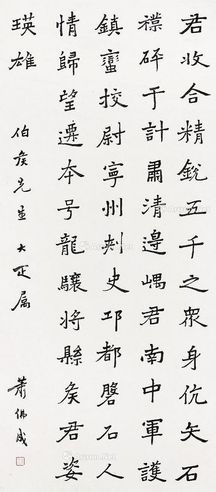 君收合精銳五千之衆身伉矢石
襆碎于計肅清邊嵎君南中軍護
鎮蠻挍尉寧州刾史邛都磬石人
情歸望遷本号龍驤將縣矦君姿
瑛雄
伯矦先生大疋屬
蕭佛成